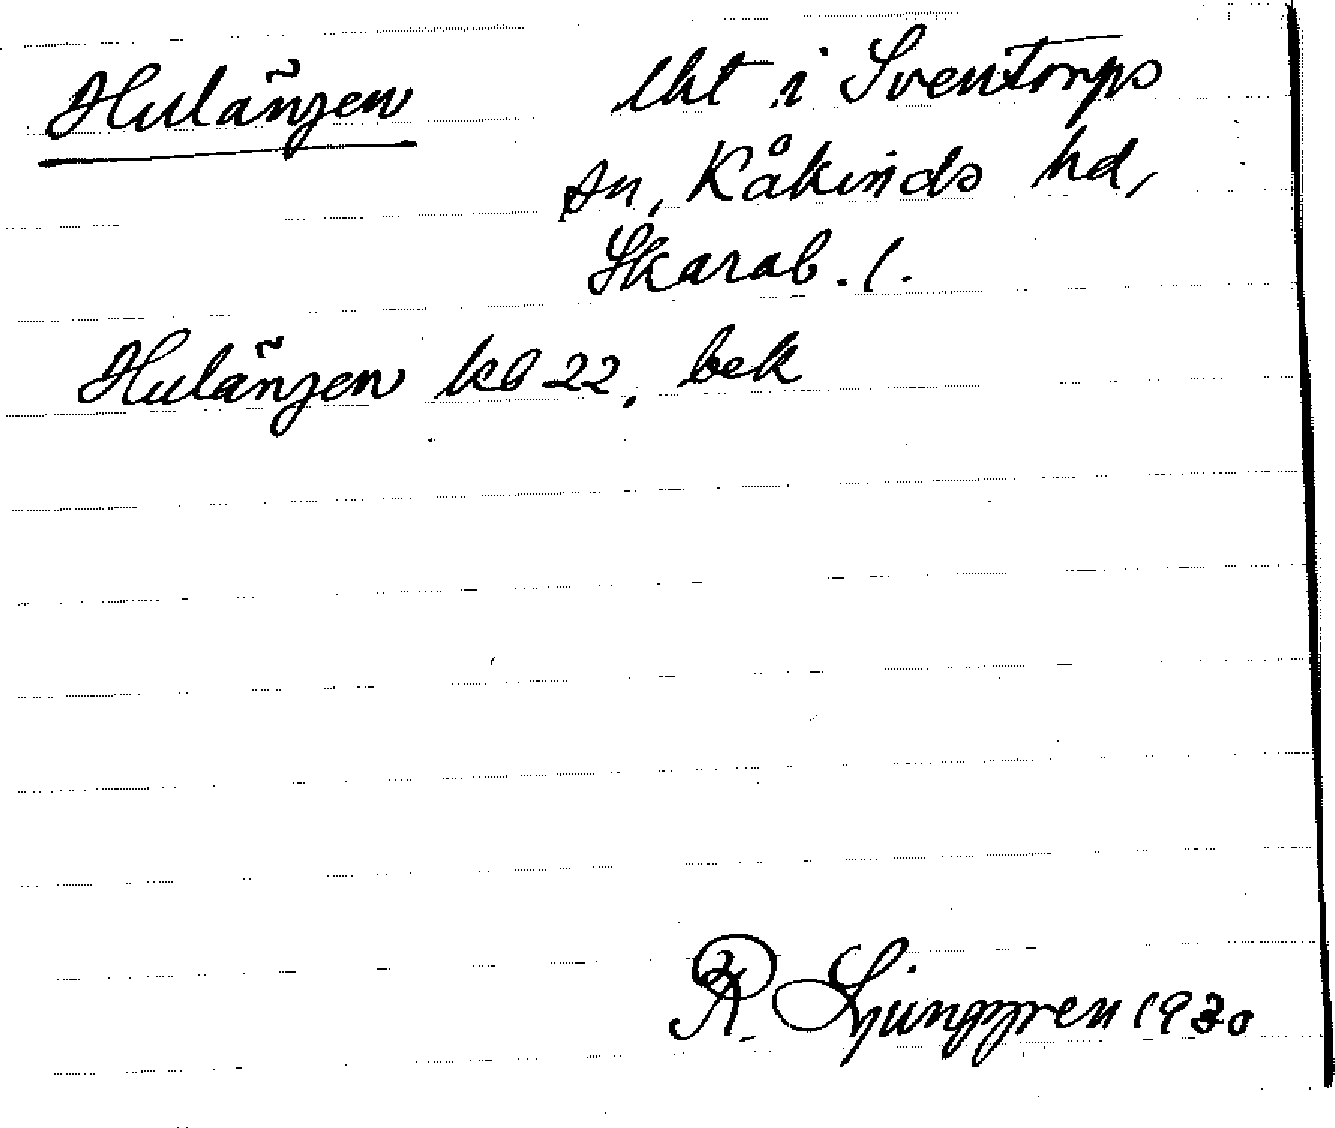 Hulängen lht i Sventorps
sn, Kåkinds hd,
Skarab. l.
Hulängen kb 22. bek
R. Ljunggren 1930